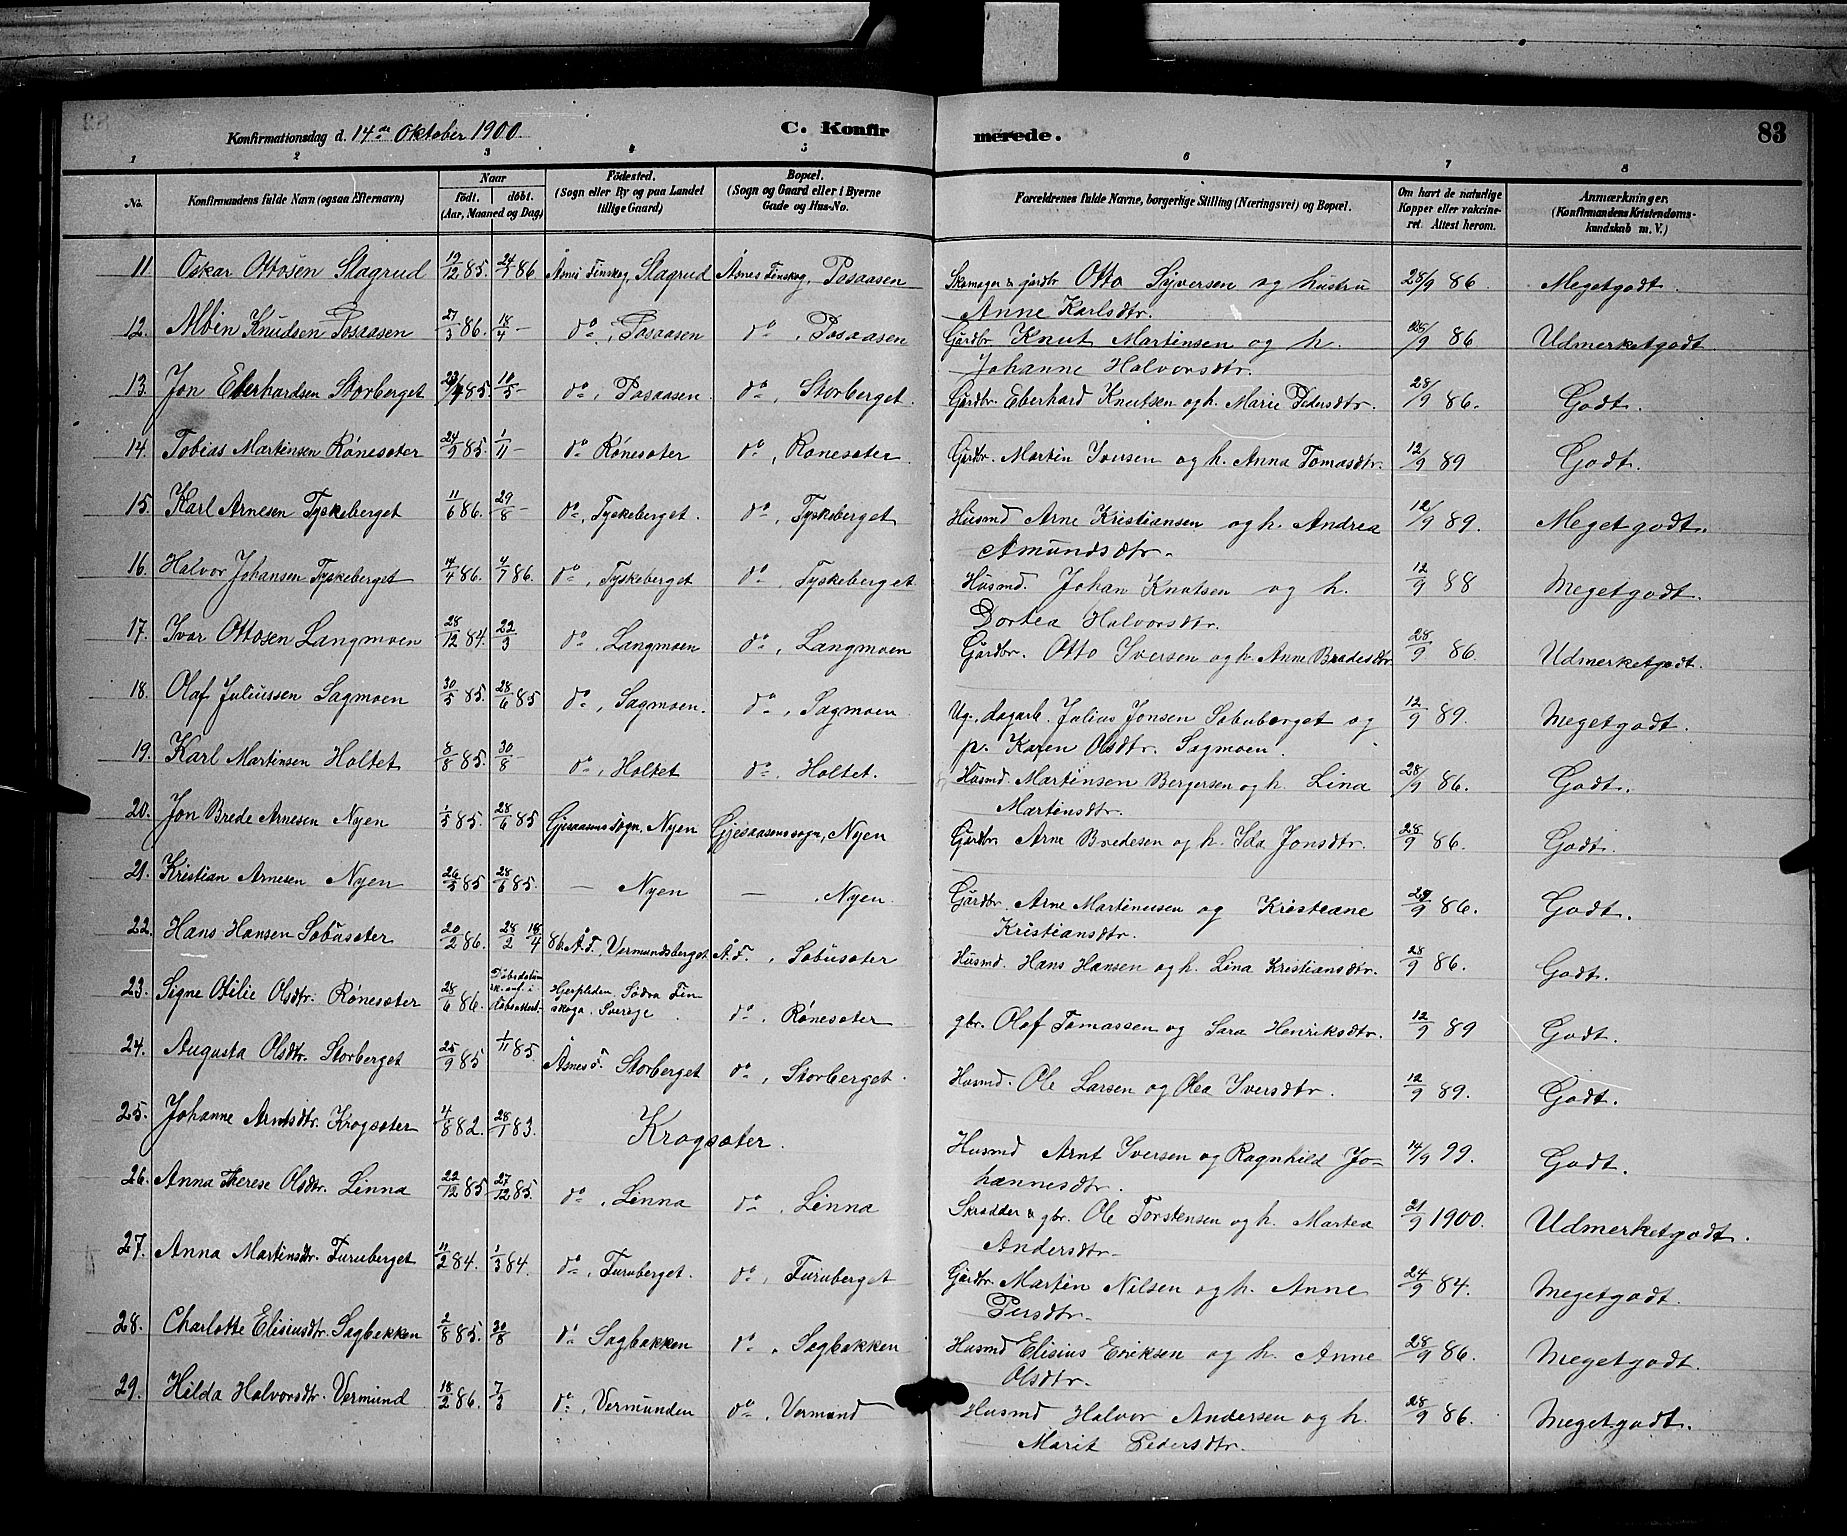 Konfirmationsdag d. 14de Oktober 1900. C. Konfirmerede. 83
1 2 3 4 5 6 7 8
No. Konfirmandens fulde Navn (ogsaa Efternavn) Naar födt. döbt. (Aar, Maaned og Dag) Födested. (Sogn eller By og paa Landet tillige Gaard) Bopæl. (Sogn og Gaard eller i Byerne Gade og Hus-No. Forældrenes fulde Navne, borgerlige Stilling (Næringsvei) og Bopæl. Om havt de naturlige Kopper eller vakcineret. Attest herom. Anmærkninger. (Konfirmandens Kristendomskundskab m. V.)
11 Oskar Ottosen Slagrud 19/12 85. 24/1 86 Åsnes Finskog, Slagrud Åsnes Finskog, Posaasen Skomager & gårdbr Otto Syversen og hustru 28/9 86 Megetgodt.
Anne Karlsdtr.
12. Albin Knudsen Posaasen 27/3 86. 18/4 - do, Posaasen do, Posaasen Gårdbr Knut Martinsen og h. 28/9 86 Udmerketgodt
Johanne Halvorsdtr.
13. Jon Eberhardsen Storberget 85. 10/5 - do, Posaasen. do, Storberget. Gårdbr. Eberhard Knutsen og h. Marie Pedersdtr. 28/9 86. Godt.
14. Tobias Martinsen Rönesæter 24/9 85. 1/11 - do Rönesæter do, Rönesæter. Gårdbr. Martin Iversen og h. Anna Tomasdtr. 12/9 89 Godt.
15. Karl Arnesen Tyskeberget 11/6 86. 29/8 - do, Tyskeberget. do, Tyskeberget Husmd Arne Kristiansen og h. Andrea 12/9 89. Megetgodt.
Amundsdtr.
16. Halvor Johansen Tyskeberget 4/4 86. 4/7 86. do, Tyskeberget do, Tyskeberget Husmd. Johan Knutsen og h. 12/9 88 Megetgodt.
Dortea Halvorsdtr.
17. Ivar Ottosen Langmoen 28/12 84. 22/3 do, Langmoen do, Langmoen Gårdbr. Otto Iversen og h. Anne Bredesdtr 28/9 86. Udmerketgodt.
18. Olaf Juliussen Sagmoen 30/5 85. 28/6 85 do, Sagmoen. do, Sagmoen Ug., dagarb. Julius Jonsen Sæbuberget og 12/9 89. Megetgodt.
p. Karen Olsdtr. Sagmoen.
19. Karl Martinsen Holtet 8/8 85. 30/8 - do, Holtet do, Holtet. Husmd. Martinsen Bergersen og h. Lina 28/9 86. Godt.
Martinsdtr.
20. Jon Brede Arnesen Nyen 1/5 85. 28/6 85 Gjesaasens sogn, Nyen Gjesaasens sogn, Nyen Gårdbr Arne Bredesen og h. Ida Jonsdtr. 28/9 86. Godt.
21. Kristian Arnesen Nyen 26/5 85 28/6 85. - Nyen - , Nyen Gårdbr. Arne Martinussen og Kristeane 28/9 86. Godt.
Kristiansdtr.
22. Hans Hansen Sæbusæter 20/2 86. 28/2 18/4 86. Å.F., Vermundsberget Å.F., Sæbusæter Husmd. Hans Hansen og h. Lina Kristiansdtr. 28/9 86. Godt.
23. Signe Otilie Olsdtr. Rönesæter 28/6 86. Hjerpliden Södra Finskoga. Sverige. do, Rönesæter gbr. Olaf Tomassen og Sara Henriksdtr. 12/9 89 Godt.
24. Augusta Olsdtr. Storberget 25/9 85 1/11 85. Åsnes F. Storberget do, Storberget. Husmd. Ole Larsen og Olea Iversdtr. 12/9 89. Godt.
25. Johanne Arntsdtr. Krogsæter 4/8 82. 28/1 83. Krogsæter. Husmd Arnt Iversen og Ragnhild Jo- 14/9 99. Godt.
hannesdtr.
26. Anna Therese Olsdtr. Linna 22/12 85 27/12 85. do, Linna do, Linna Skrædder & gbr. Ole Torstensen og h. Martea 21/9 1900. Udmerketgodt.
Andersdtr.
27. Anna Martinsdtr. Furuberget 11/2 84. 1/3 84. do, Furuberget. do, Furuberget Gårdbr Martin Nilsen og h. Anne 24/9 84. Megetgodt.
Persdtr.
28. Charlotte Elisiusdtr. Sagbækken 2/8 85. 30/8 do Sagbækken do, Sagbækken Husmd Elisius Eriksen og h. Anne 28/9 86. Megetgodt.
Olsdtr.
29. Hilda Halvorsdtr. Vermund 18/2 86. 7/3 do, Vermunden do, Vermund Husmd Halvor Andersen og h. 28/9 86. Megetgodt.
Marit Pedersdtr.